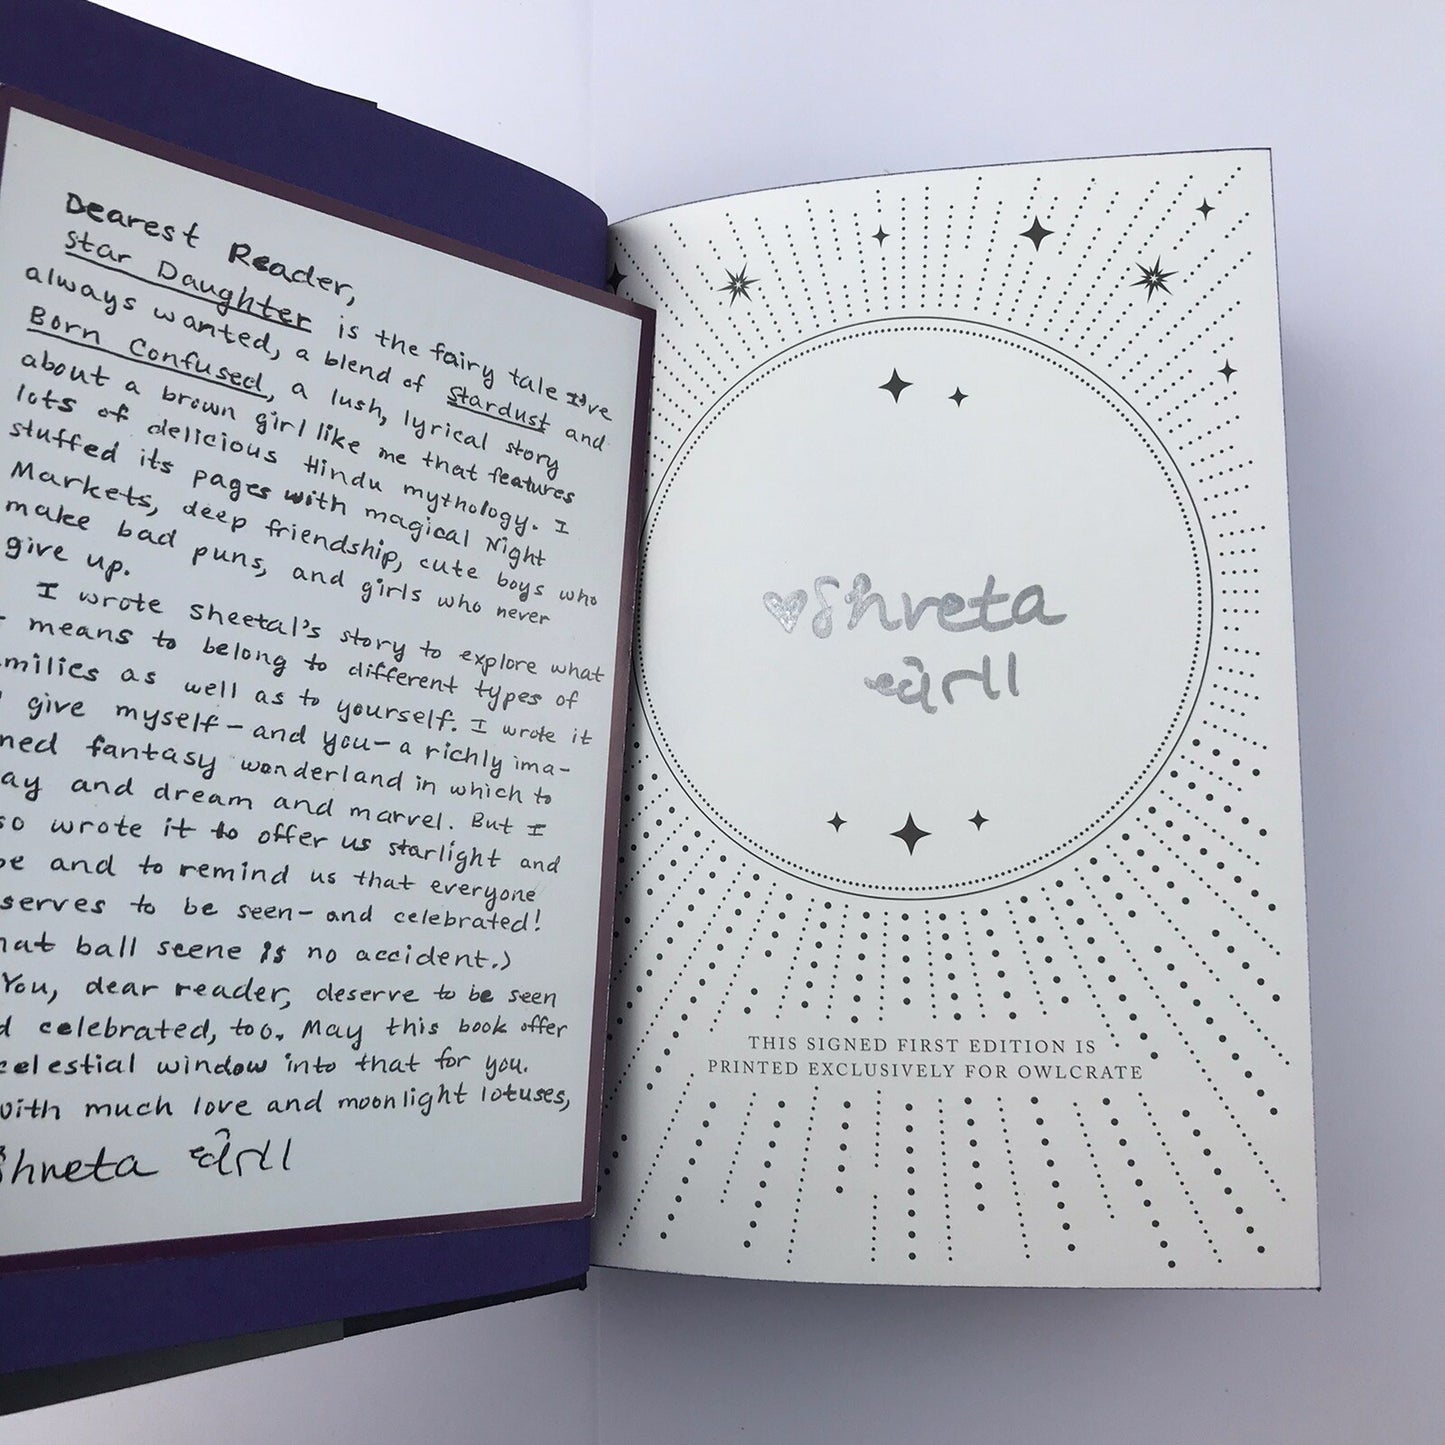 Dearest Reader,
Star Daughter is the fairy tale I've
always wanted, a blend of Stardust and
Born Confused, a lush, lyrical story
about a brown girl like me that features
lots of delicious Hindu mythology. I
stuffed its pages with magical Night
Markets, deep friendship, cute boys who
make bad puns, and girls who never
give up.
I wrote Sheetal's story to explore what
t means to belong to different types of
milies as well as to yourself. I wrote it
give myself-and you-a richly ima-
ned fantasy wonderland in which to
ay and dream and marvel. But I
so wrote it to offer us starlight and
pe and to remind us that everyone
serves to be seen-and celebrated!
hat ball scene is no accident.)
You, dear reader, deserve to be seen
d celebrated, too. May this book offer
celestial window into that for you.
with much love and moonlight lotuses,
Shveta
♡Shveta
THIS SIGNED FIRST EDITION IS
PRINTED EXCLUSIVELY FOR OWLCRATE